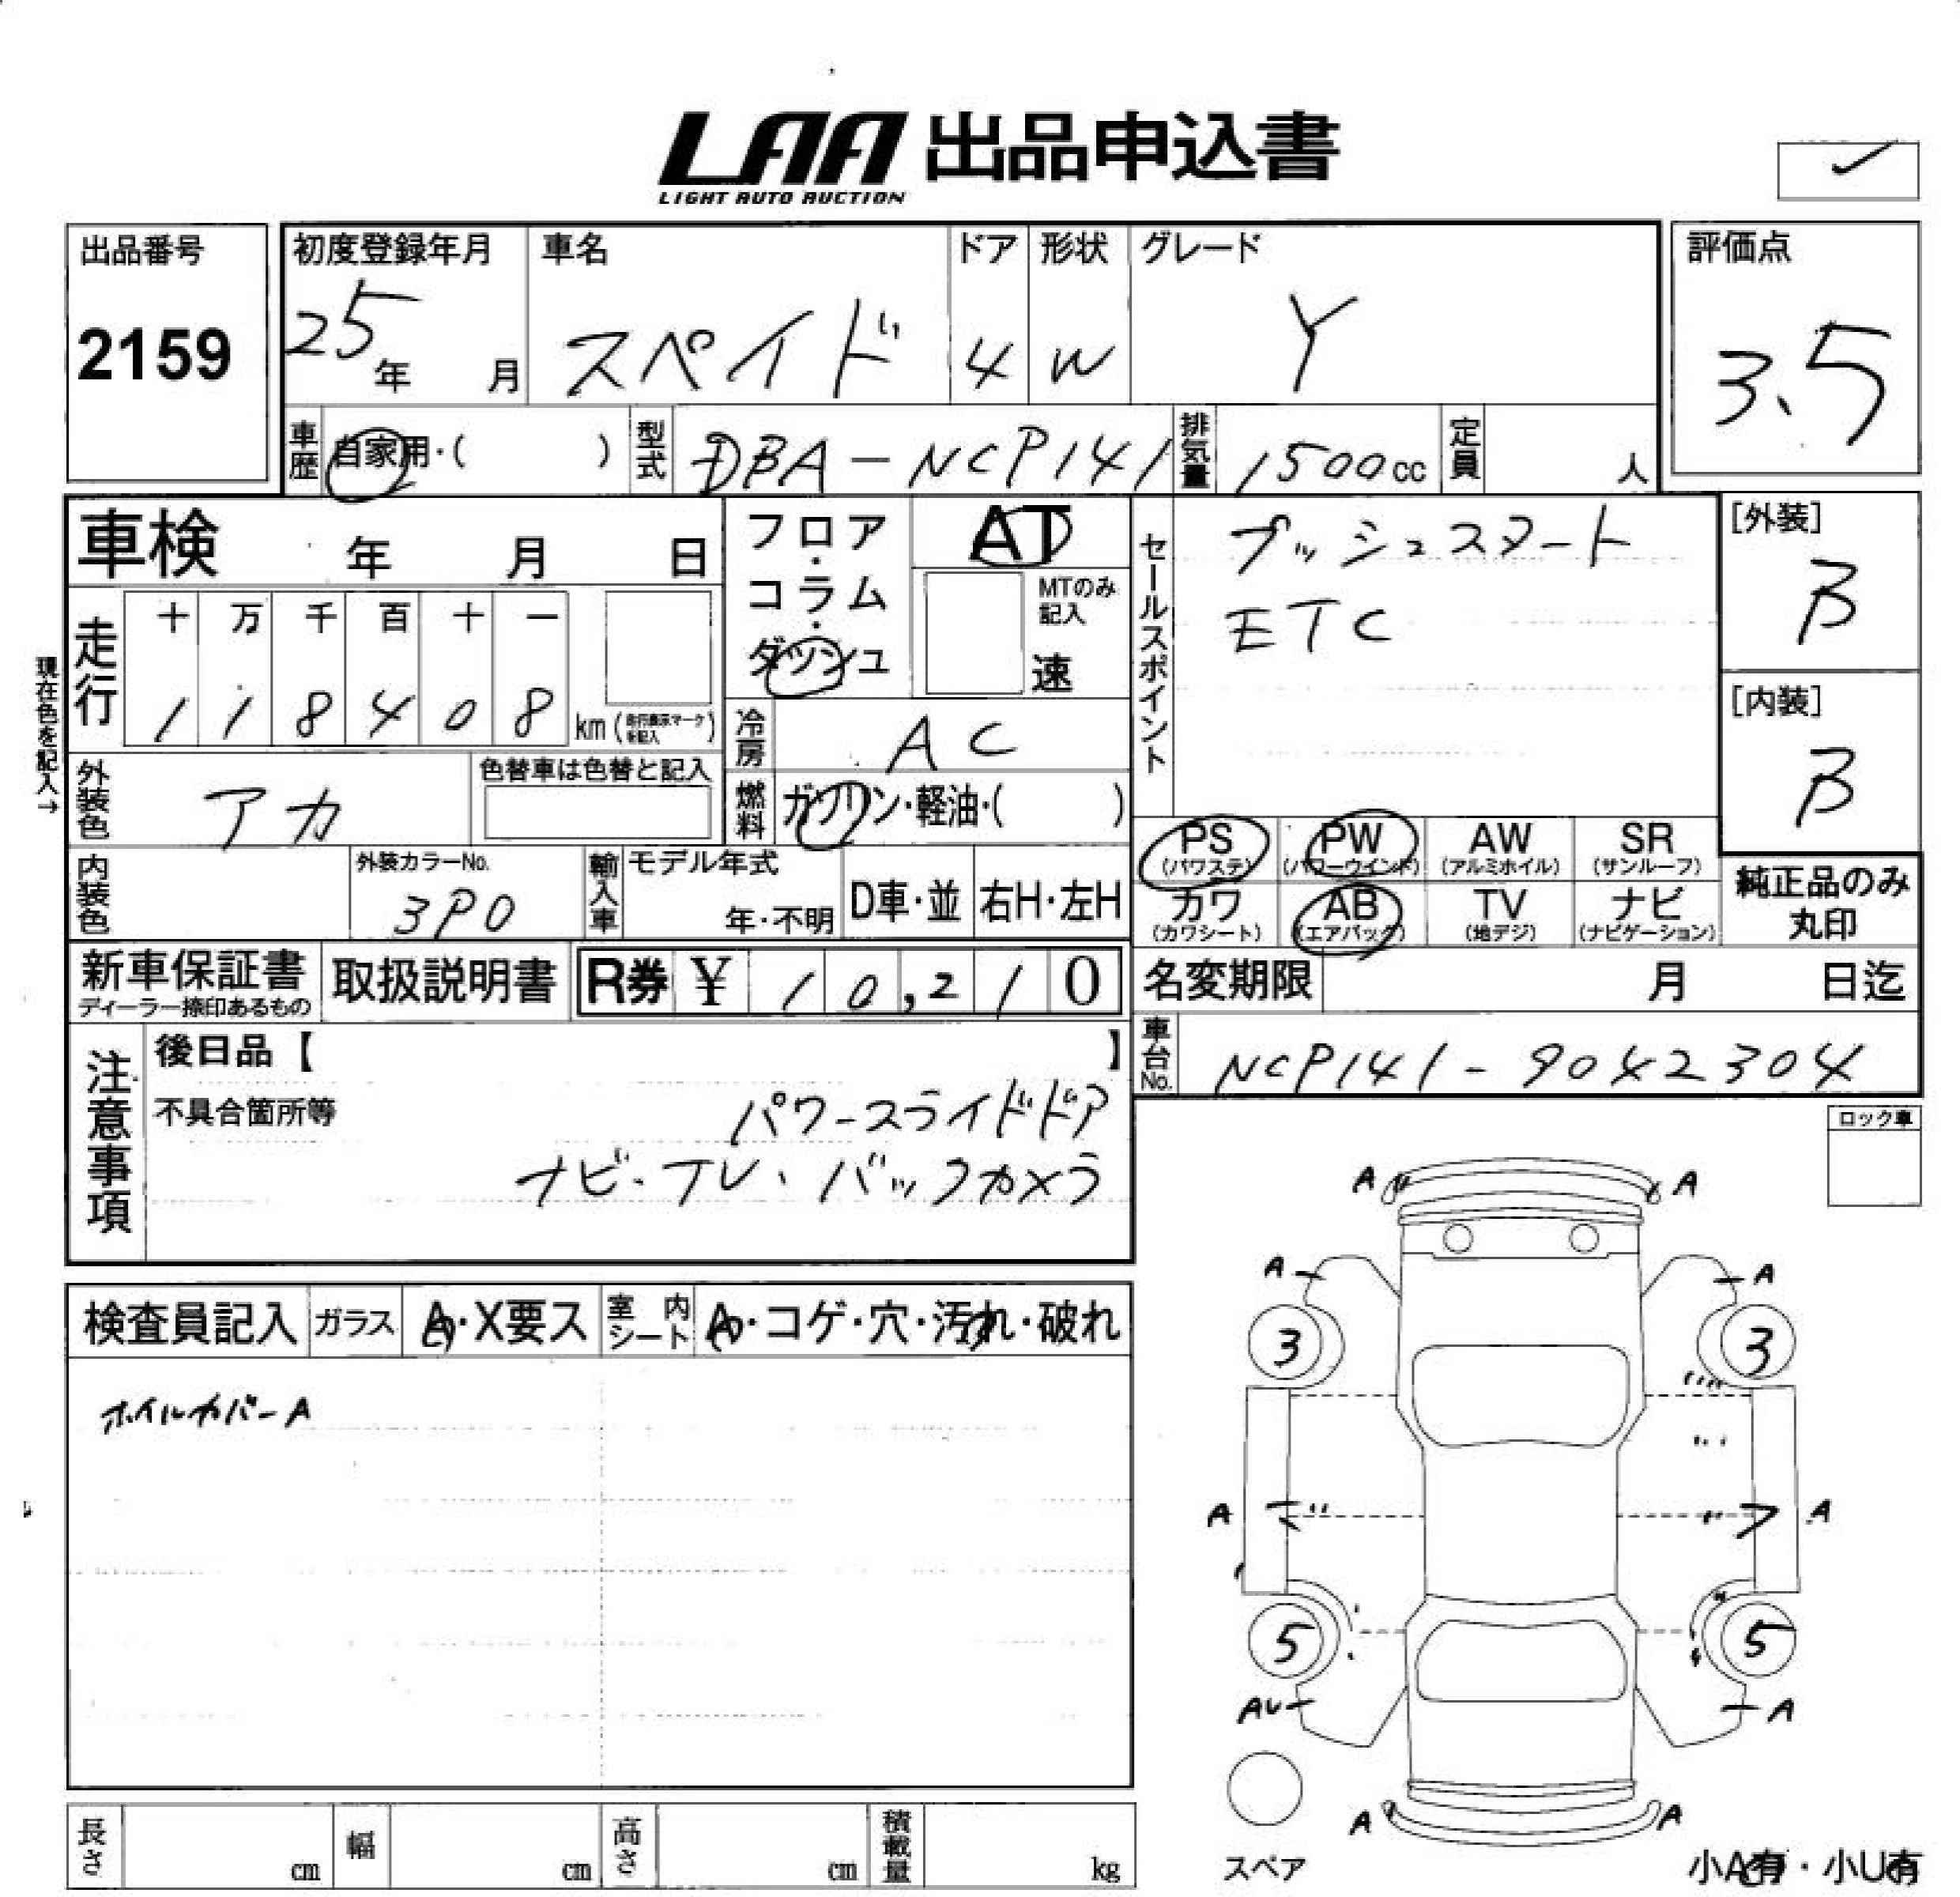 LAA 出品申込書
LIGHT AUTO AUCTION
出品番号
2159
初度登録年月
25年 月
車名
スペイド
ドア
4
形状
W
グレード
Y
評価点
3.5
車歴 自家用・( )
型式 DBA-NCP141
排気量 1500cc
定員 人
車検 年 月 日
フロア・コラム・ダッシュ
AT
MTのみ記入
速
セールスポイント
プッシュスタート
ETC
[外装]
B
[内装]
B
現在色を記入→
走行
十 万 千 百 十 一
1 1 8 4 0 8 km (走行表示マークを記入)
冷房 AC
外装色 アカ
色替車は色替と記入
燃料 ガソリン・軽油・( )
PS (パワステ)
PW (パワーウインド)
AW (アルミホイル)
SR (サンルーフ)
カワ (カワシート)
AB (エアバック)
TV (地デジ)
ナビ (ナビゲーション)
純正品のみ丸印
内装色
外装カラーNo.
3P0
輸入車
モデル年式
年・不明
D車・並
右H・左H
新車保証書
ディーラー捺印あるもの
取扱説明書
R券 ¥ 10,210
名変期限 月 日迄
車台No. NCP141-9042304
注意事項
後日品【 】
不具合箇所等
パワースライドドア
ナビ・TV・バックカメラ
ロック車
検査員記入
ガラス
A・X要ス
室内シート
A・コゲ・穴・汚れ・破れ
ホイルカバーA
A A
A A
3 3
A A
5 5
AU A
A A
スペア
小A有・小U有
長さ cm
幅 cm
高さ cm
積載量 kg